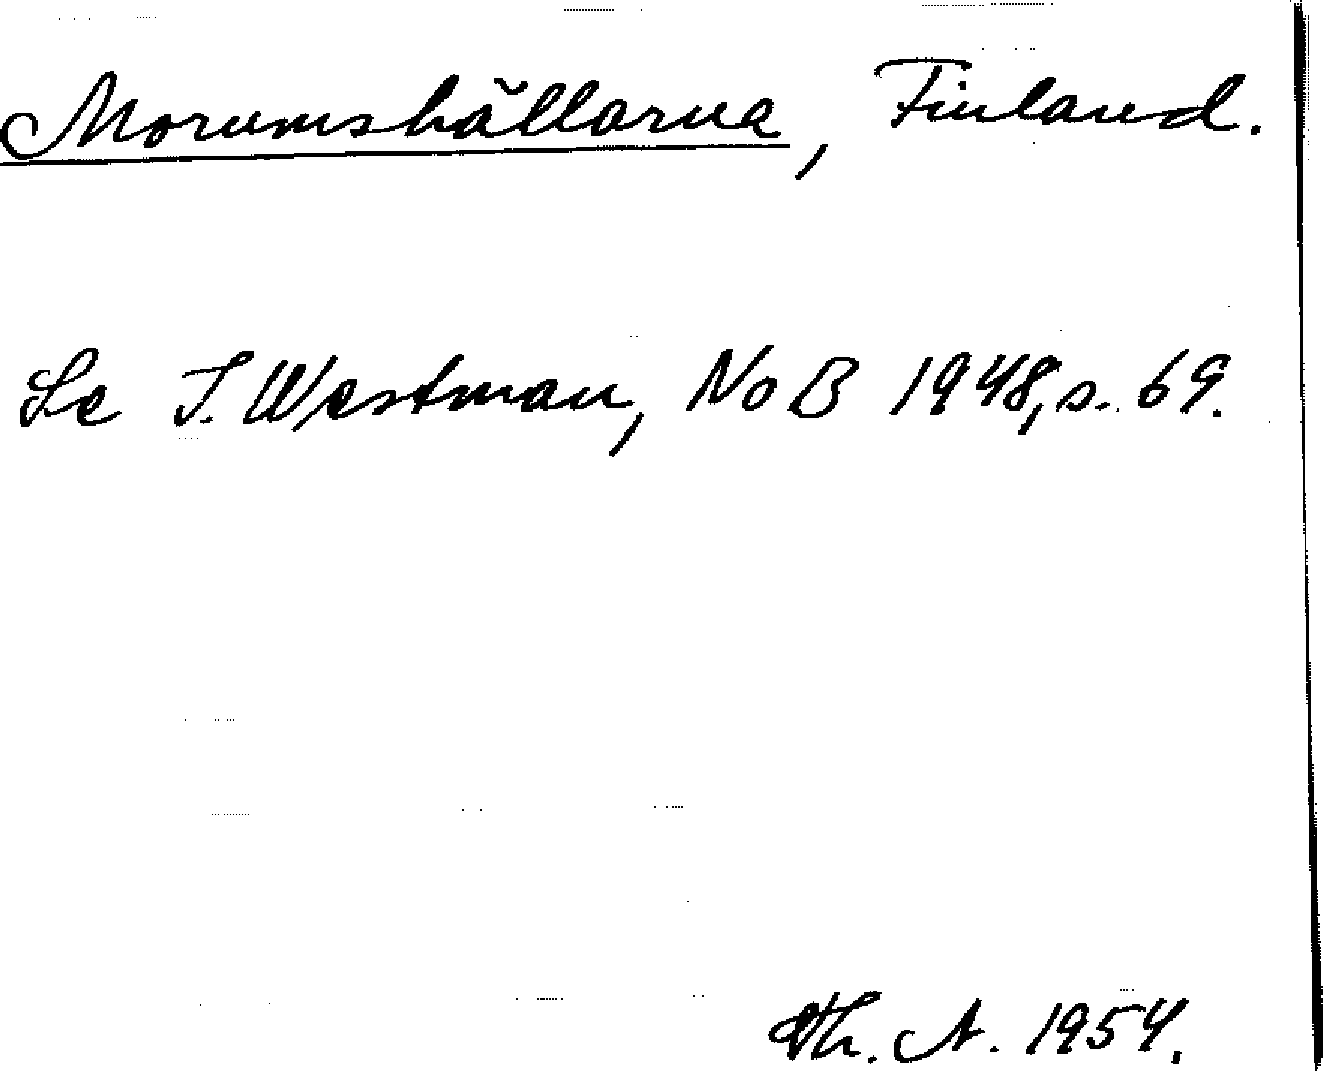 Morumshällarna, Finland.
Se I. Westman, NoB 1948, s. 69.
Th. A. 1954.